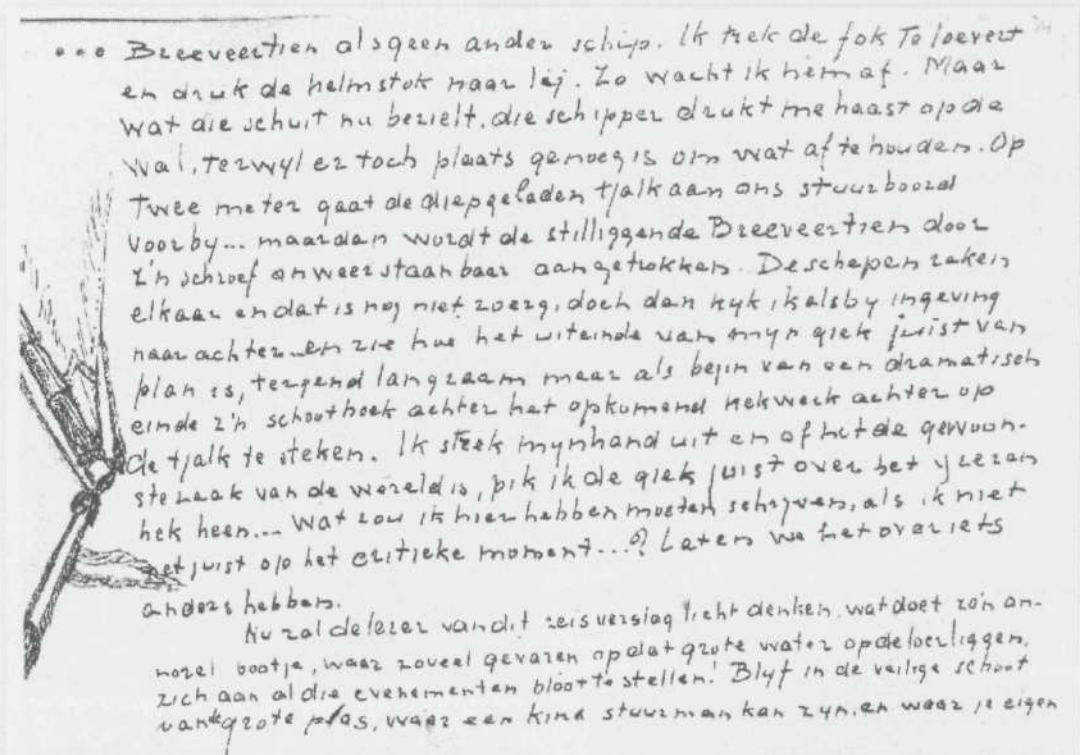 ... Breeveertien als geen ander schip. Ik trek de fok Te loevert
en druk de helmstok naar lij. Zo wacht ik hem af. Maar
wat die schuit nu bezielt, die schipper drukt me haast op de
wal, terwyl er toch plaats genoeg is om wat af te houden. Op
Twee meter gaat de diepgeladen tjalk aan ons stuurboord
voorby... maar dan wordt de stilliggende Breeveertien door
z'n schroef onweerstaanbaar aangetrokken. De schepen raken
elkaar en dat is nog niet zo erg, doch dan kyk ik als by ingeving
naar achter en zie hoe het uiteinde van myn giek juist van
plan is, tergend langzaam maar als begin van een dramatisch
einde z'n schoothoek achter het opkomend hekwerk achter op
de tjalk te steken. Ik steek myn hand uit en of het de gewoon-
ste zaak van de wereld is, pik ik de giek juist over het yzeren
hek heen... Wat zou ik hier hebben moeten schryven, als ik niet
net juist op het critieke moment...? Laten we het over iets
anders hebben.
Nu zal de lezer van dit reisverslag licht denken, wat doet zo'n on-
nozel bootje, waar zoveel gevaren op dat grote water op de loer liggen,
zich aan al die evenementen bloot te stellen! Blyf in de veilige schoot
van de grote plas, waar een kind stuurman kan zyn, en waar je eigen